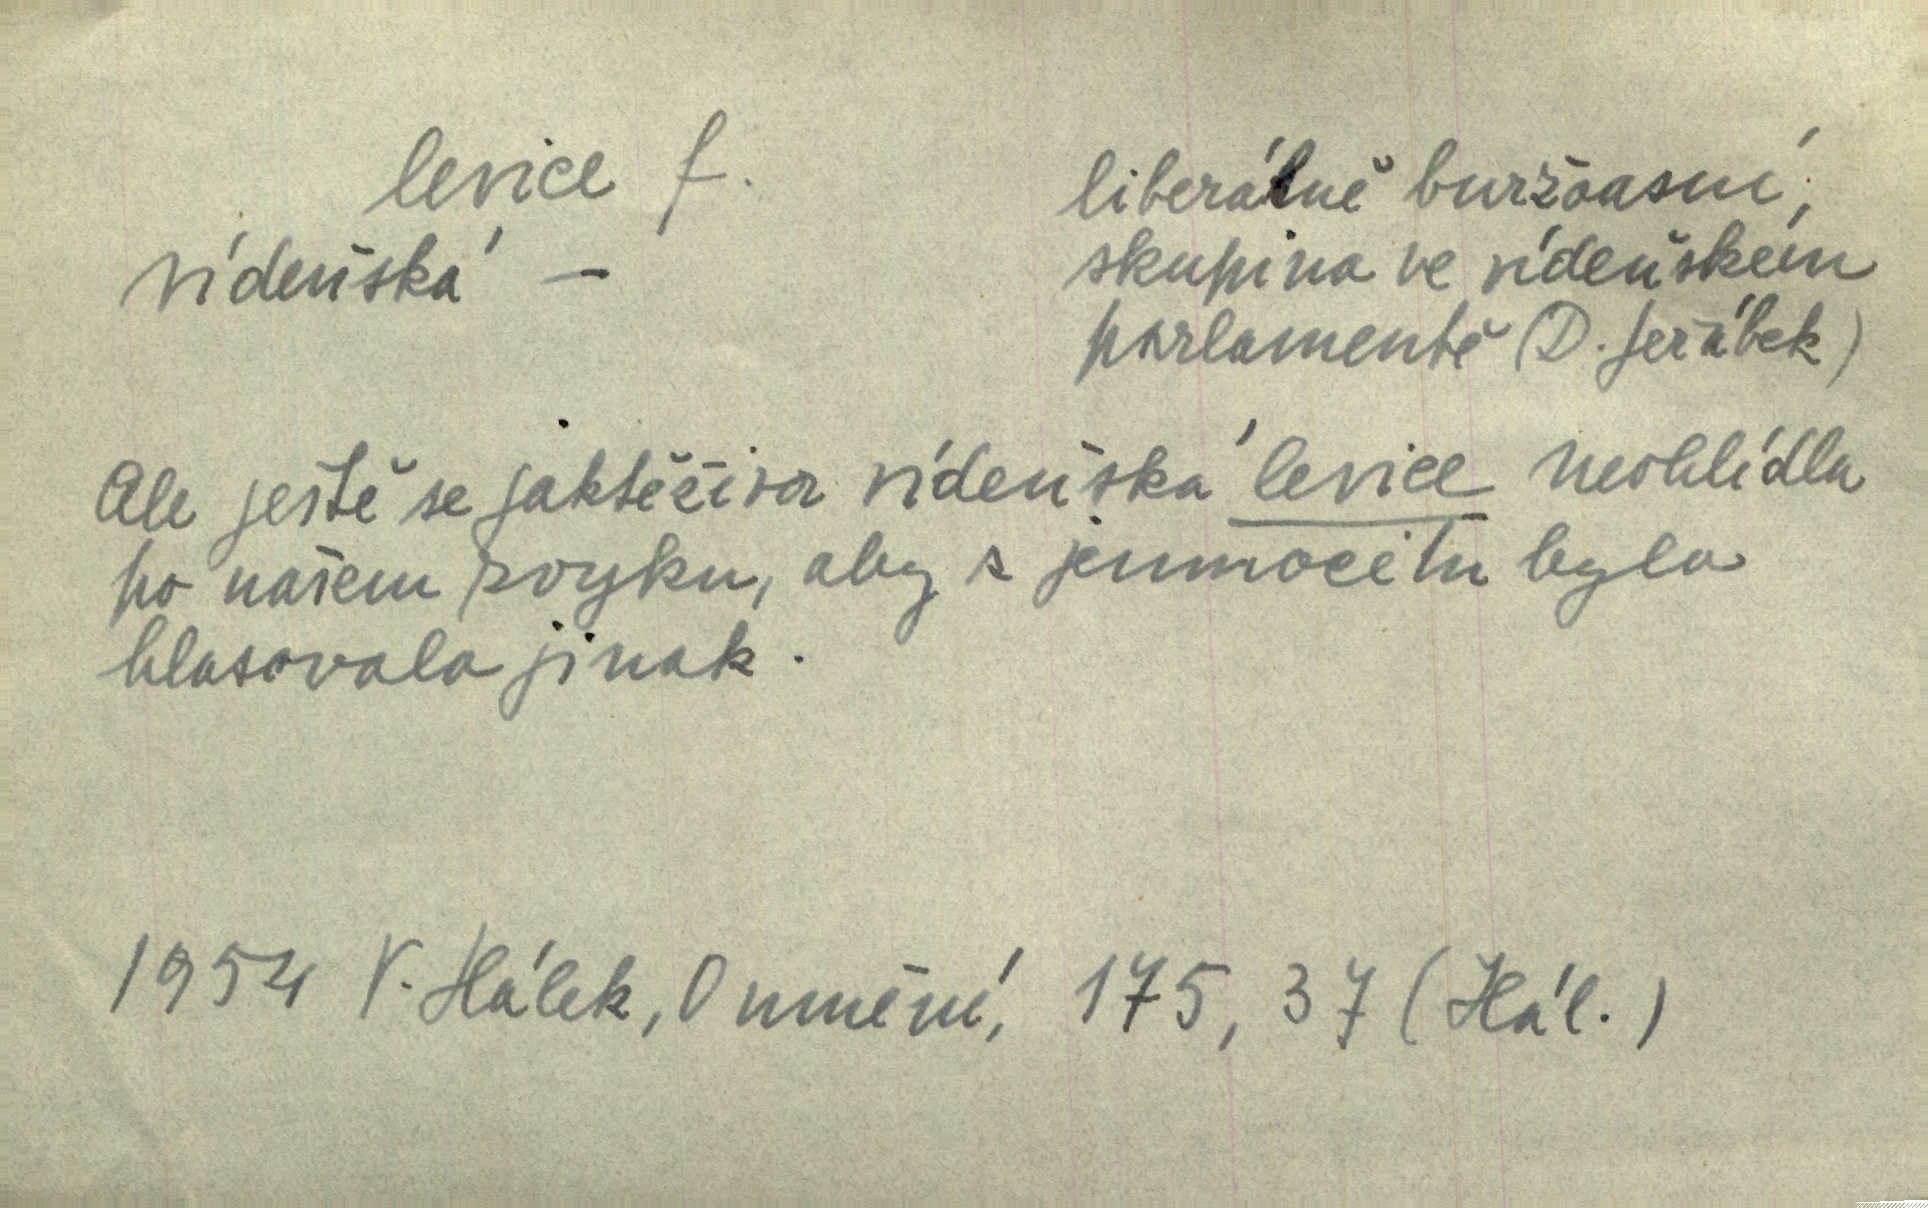 levice f.
vídeňská –
liberálně buržoasní
skupina ve vídeňském
parlamentě (D. Jeřábek)
Ale ještě se jaktěživa vídeňská levice neohlídla
po našem zvyku, aby s jemnocitu byla
hlasovala jinak.
1954 V. Hálek, O umění, 175, 37 (Hál.)